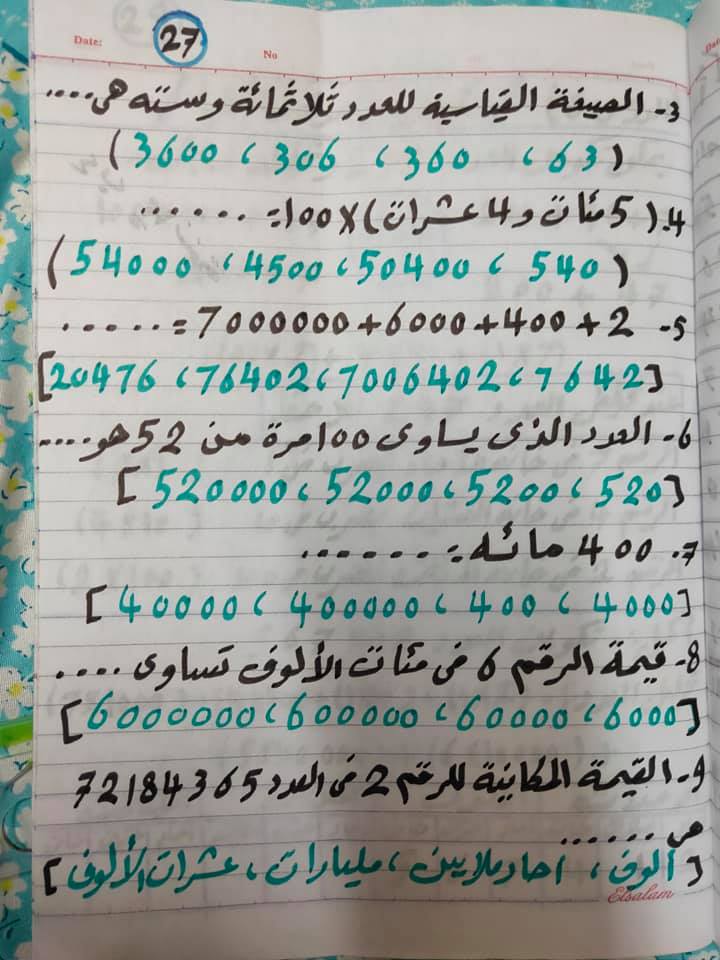 Date:
27
No
3- الصيغة القياسية للعدد ثلاثمائة وسته هى....
(63 ، 360 ، 306 ، 3600)
4. (5 مئات و 4 عشرات) X 100 = ......
(540 ، 50400 ، 4500 ، 54000)
5- 7000000+6000+400+2 = .....
[7642 ، 7006402 ، 76402 ، 20476]
6- العدد الذى يساوى 100 مرة من 52 هو....
[520 ، 5200 ، 52000 ، 520000]
7. 400 مائه = ......
[4000 ، 400 ، 400000 ، 40000]
8- قيمة الرقم 6 فى مئات الألوف تساوى ....
[6000 ، 60000 ، 600000 ، 6000000]
9- القيمة المكانية للرقم 2 فى العدد 72184365
هى ......
[ألوف ، احاد ملايين ، مليارات ، عشرات الألوف]
Elsalam